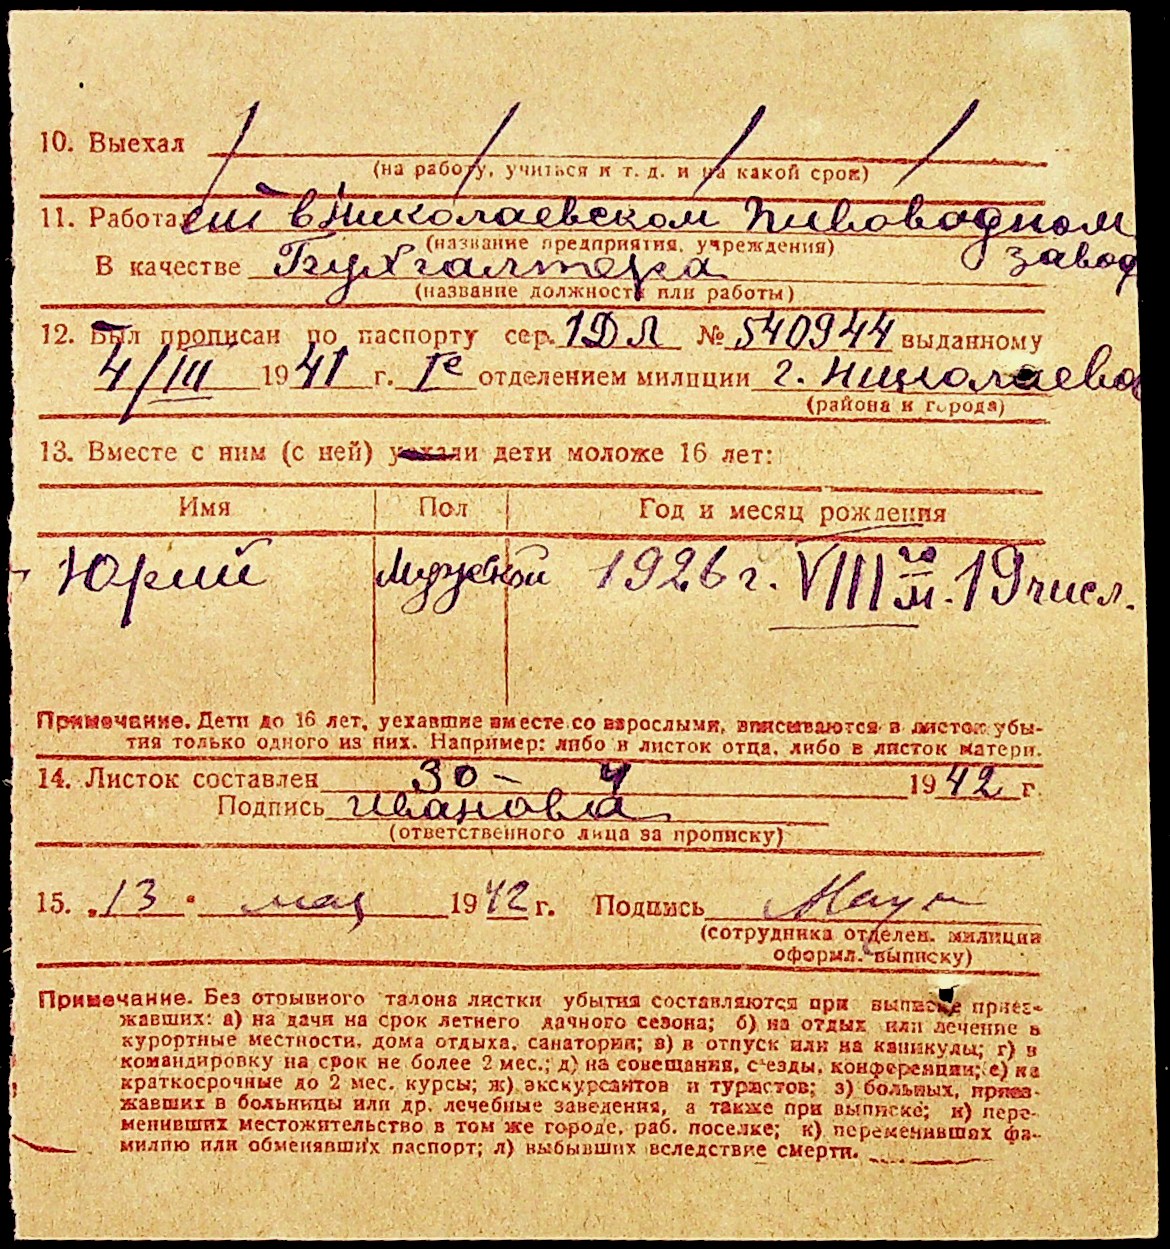 10. Выехал / / / /
(на работу, учиться и т. д. и на какой срок)
11. Работает в Николаевском Пивоводном
(название предприятия, учреждения)
завод
В качестве Бухгалтера
(название должности или работы)
12. Был прописан по паспорту сер. 1ДЛ № 540944 выданному
4/III 1941 г. Iе отделением милиции г. Николаева
(района и города)
13. Вместе с ним (с ней) уехали дети моложе 16 лет:
Имя Пол Год и месяц рождения
Юрий Мужской 1926 г. VIII го м. 19 числ.
Примечание. Дети до 16 лет, уехавшие вместе со взрослыми, вписываются в листок убы-
тия только одного из них. Например: либо в листок отца, либо в листок матери.
14. Листок составлен 30 - 4 1942 г.
Подпись Иванова
(ответственного лица за прописку)
15. „13" мая 1942 г. Подпись
(сотрудника отделен. милиции
оформл. выписку)
Примечание. Без отрывного талона листки убытия составляются при выписке приез-
жавших: а) на дачи на срок летнего дачного сезона; б) на отдых или лечение в
курортные местности, дома отдыха, санатории; в) в отпуск или на каникулы; г) в
командировку на срок не более 2 мес.; д) на совещания, съезды, конференции; е) на
краткосрочные до 2 мес. курсы; ж) экскурсантов и туристов; з) больных, приез-
жавших в больницы или др. лечебные заведения, а также при выписке; и) пере-
менивших местожительство в том же городе, раб. поселке; к) переменивших фа-
милию или обменявших паспорт; л) выбывших вследствие смерти.